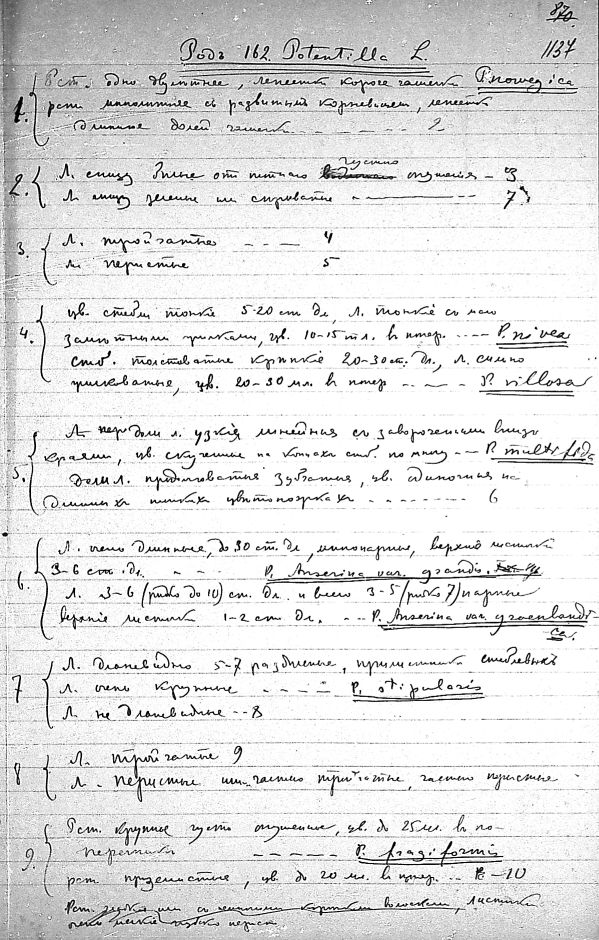 870
1137
Родъ 162. Potentilla L.
1. Рст. одно двулѣтнее, лепестки короче чашечки P. norvegica
рст. многолѣтнее съ развитымъ корневищем, лепестки
длиннѣе долей чашечки - - - - - - 2
2. Л. снизу бѣлые от густо опушенія - 3
Л. снизу зеленые или сѣроватые - - - 7
3. Л. тройчатые - - - 4
Л. перистые 5
4. цв. стебли тонкіе 5-20 ст. дл, л. тонкіе съ мало
замѣтными жилками, цв. 10-15 мл. в попер. - - - P. nivea
стб. толстоватые крѣпкіе 20-30 ст. дл., л. сильно
жилковатые, цв. 20-30 мл. в попер - - - P. villosa
5. доли л. узкія линейныя съ завороченными внизъ
краями, цв. скученные на концахъ стб. по многу - - P. multifida
Доли л. продолговатые зубчатыя, цв. одиночныя на
длинныхъ цвѣтоножкахъ - - - - - - - 6
6. Л. очень длинные, до 30 ст. дл, верхніе листочки
3-6 ст. дл. - - - P. Anserina var. grandis.
Л. 3-6 (рѣдко до 10) ст. дл. и всего 3-5 (рѣдко 7) парные
верхніе листочки 1-2 ст дл. - - - P. Anserina var. groenlandi-
ca.
7 Л. дланевидно 5-7 раздѣльные, прилистники стеблевыхъ
л. очень крупные - - - - - P. stipularis
Л. не дланевидные - - 8
8 Л. тройчатые 9
Л. перистые или частью тройчатые, частью перистые -
9. Рст. крупное густо опушенное, цв. до 25 мл. в по-
перечнику - - - - - P. fragiformis
рст. приземистые, цв. до 20 мл. в попер. - - - 10
Рст. или съ короткими волосками, листочки
очень